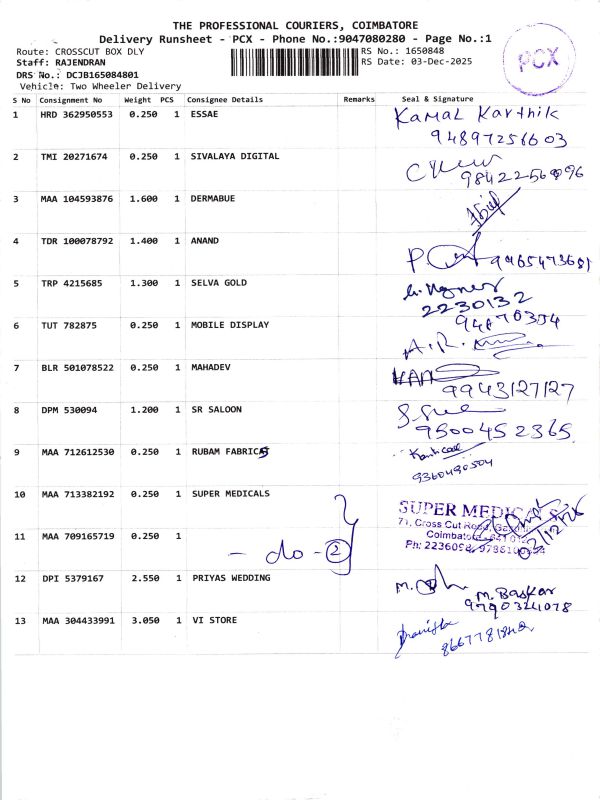 THE PROFESSIONAL COURIERS, COIMBATORE
Delivery Runsheet - PCX - Phone No.:9047080280 - Page No.:1
Route: CROSSCUT BOX DLY RS No.: 1650848
Staff: RAJENDRAN RS Date: 03-Dec-2025
DRS No.: DCJB165084801
Vehicle: Two Wheeler Delivery
PCX
S No Consignment No Weight PCS Consignee Details Remarks Seal & Signature
1 HRD 362950553 0.250 1 ESSAE Kamal Karthik
94897256603
2 TMI 20271674 0.250 1 SIVALAYA DIGITAL
3 MAA 104593876 1.600 1 DERMABUE
4 TDR 100078792 1.400 1 ANAND
5 TRP 4215685 1.300 1 SELVA GOLD
2230132
6 TUT 782875 0.250 1 MOBILE DISPLAY
7 BLR 501078522 0.250 1 MAHADEV
9943127127
8 DPM 530094 1.200 1 SR SALOON
9500452365
9 MAA 712612530 0.250 1 RUBAM FABRICS
9360490504
10 MAA 713382192 0.250 1 SUPER MEDICALS SUPER MEDICALS
71, Cross Cut Road,
Coimbatore
11 MAA 709165719 0.250 1 - do - 2
12 DPI 5379167 2.550 1 PRIYAS WEDDING
M. Baskar
13 MAA 304433991 3.050 1 VI STORE